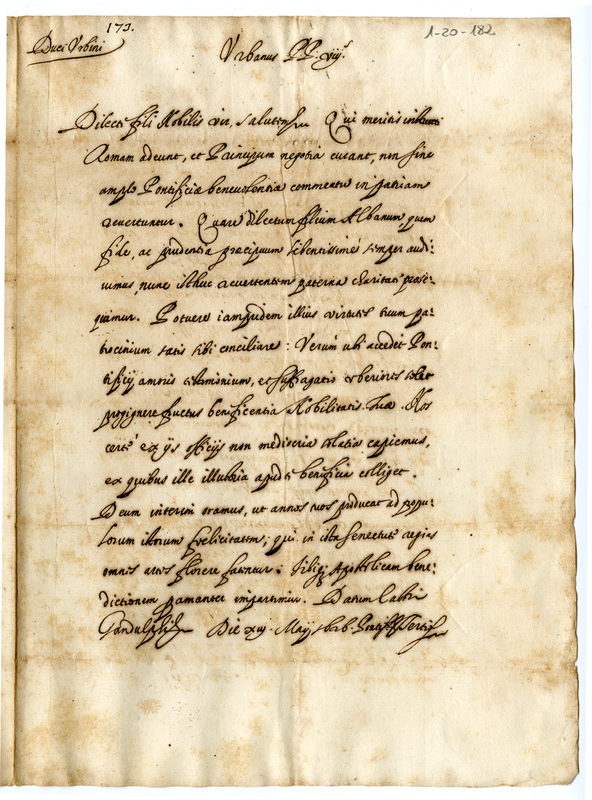 173.
1-20-182
Duci Urbini
Urbanus PP. viij.s
Dilecte fili Nobilis vir, salutem Qui meritis instructi
Romam adeunt, et Principum negotia curant, non sine
amplo Pontificiae benevolentiae commeatu in patriam
revertuntur. Quare dilectum filium Albanum, quem
fide, ac prudentia praecipuum libentissime semper audi:
vimus, nunc isthuc revertentem paterna charitate prose:
quimur. Potuere iampridem illius virtutes tuum pa:
trocinium satis sibi conciliare: Verum ubi accedet Pon:
tificij amoris testimonium, et suffragatio uberiores solet
progignere fructus beneficentia Nobilitatis Tuae. Nos
certe ex ijs officijs non mediocria solatia capiemus,
ex quibus ille illustria apud te beneficia colliget.
Deum interim oramus, ut annos tuos producat ad popu:
lorum istorum felicitatem; qui in ista senectute regias
omnes artes florere fatentur: Tibiq; Apostolicam bene:
dictionem peramanter impartimur. Datum Castri
Gandulphi Die xij Maij 1626. Pontif. Tertio